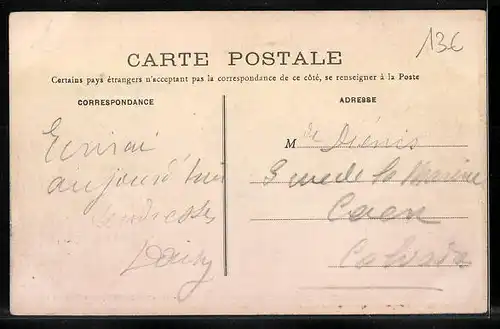 13€
CARTE POSTALE
Certains pays étrangers n'acceptant pas la correspondance de ce côté, se renseigner à la Poste
CORRESPONDANCE
ADRESSE
Ecrirai
aujourd'hui
tendresses
Daisy
M de Diénis
3 rue de la
Caen
Calvados